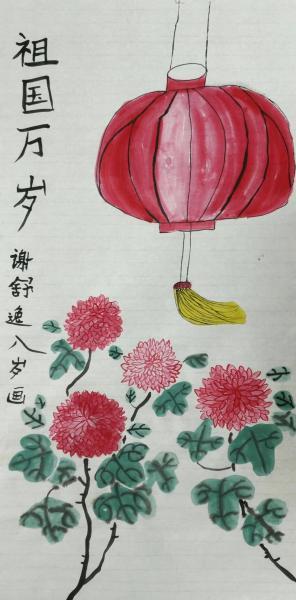 祖国万岁
谢舒逸八岁画